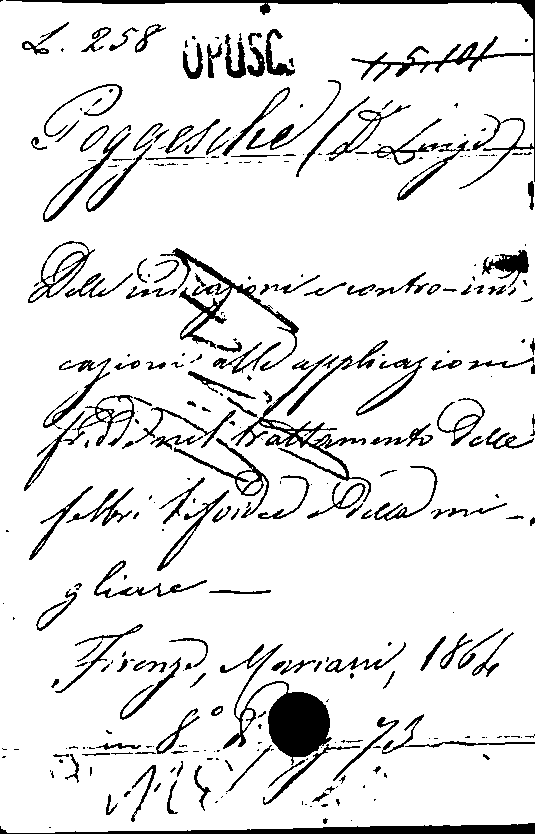 L. 258 OPUSC.
Poggeschi (Dr Luigi)
Delle indicazioni e contro-indi,
cazioni alle applicazioni
fredde nel trattamento delle
febbri tifoidee e della mi-
gliare —
Firenze, Mariani, 1864
in 8° di pag 73